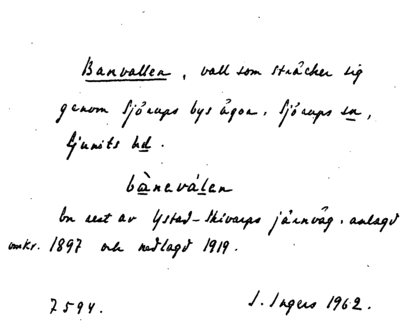 Banvallen, vall som sträcker sig
genom Sjörups bys ägor, Sjörups sn,
Ljunits hd.
bàneválen
En rest av Ystad–Skivarps järnväg, anlagd
omkr. 1897 och nedlagd 1919.
7594. I. Ingers 1962.